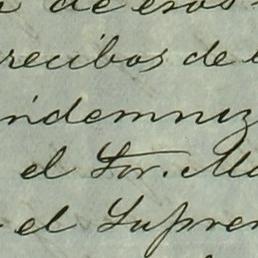 de esos
recibos de
indemniz
el Sor. Ma
el Supre